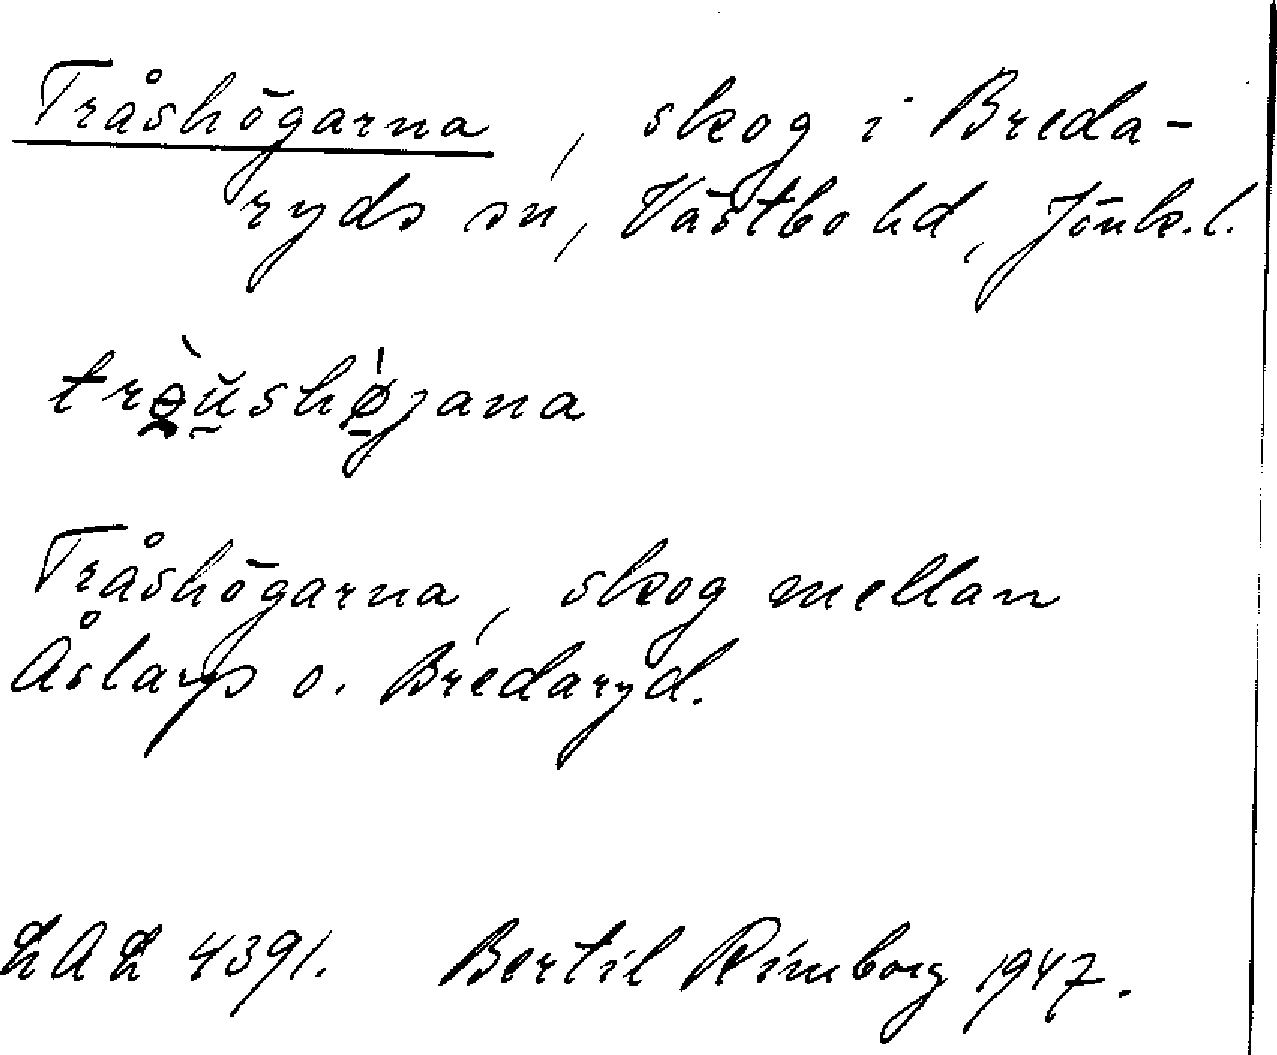 Tråshögarna, skog i Breda-
ryds sn, Västbo hd, Jönk.l.
trɵ̀ŭshǿjana
Tråshögarna, skog mellan
Åslarp o. Bredaryd.
LAL 4391. Bertil Rimborg 1947.